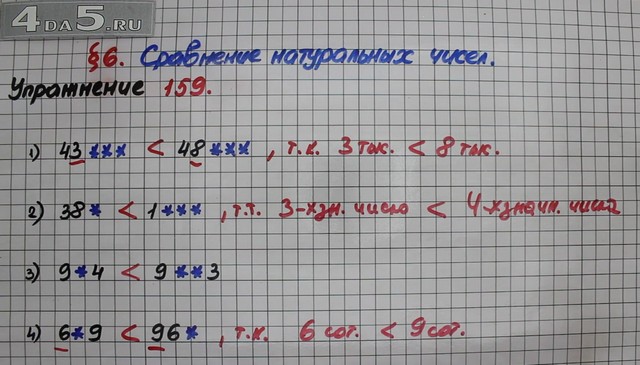 4DA5.RU
§6. Сравнение натуральных чисел.
Упражнение 159.
1) 43*** < 48***, т.к. 3 тыс. < 8 тыс.
2) 38* < 1***, т.т. 3-хзн. число < 4-хзначн. числа
3) 9*4 < 9**3
4) 6*9 < 96*, т.к. 6 сот. < 9 сот.